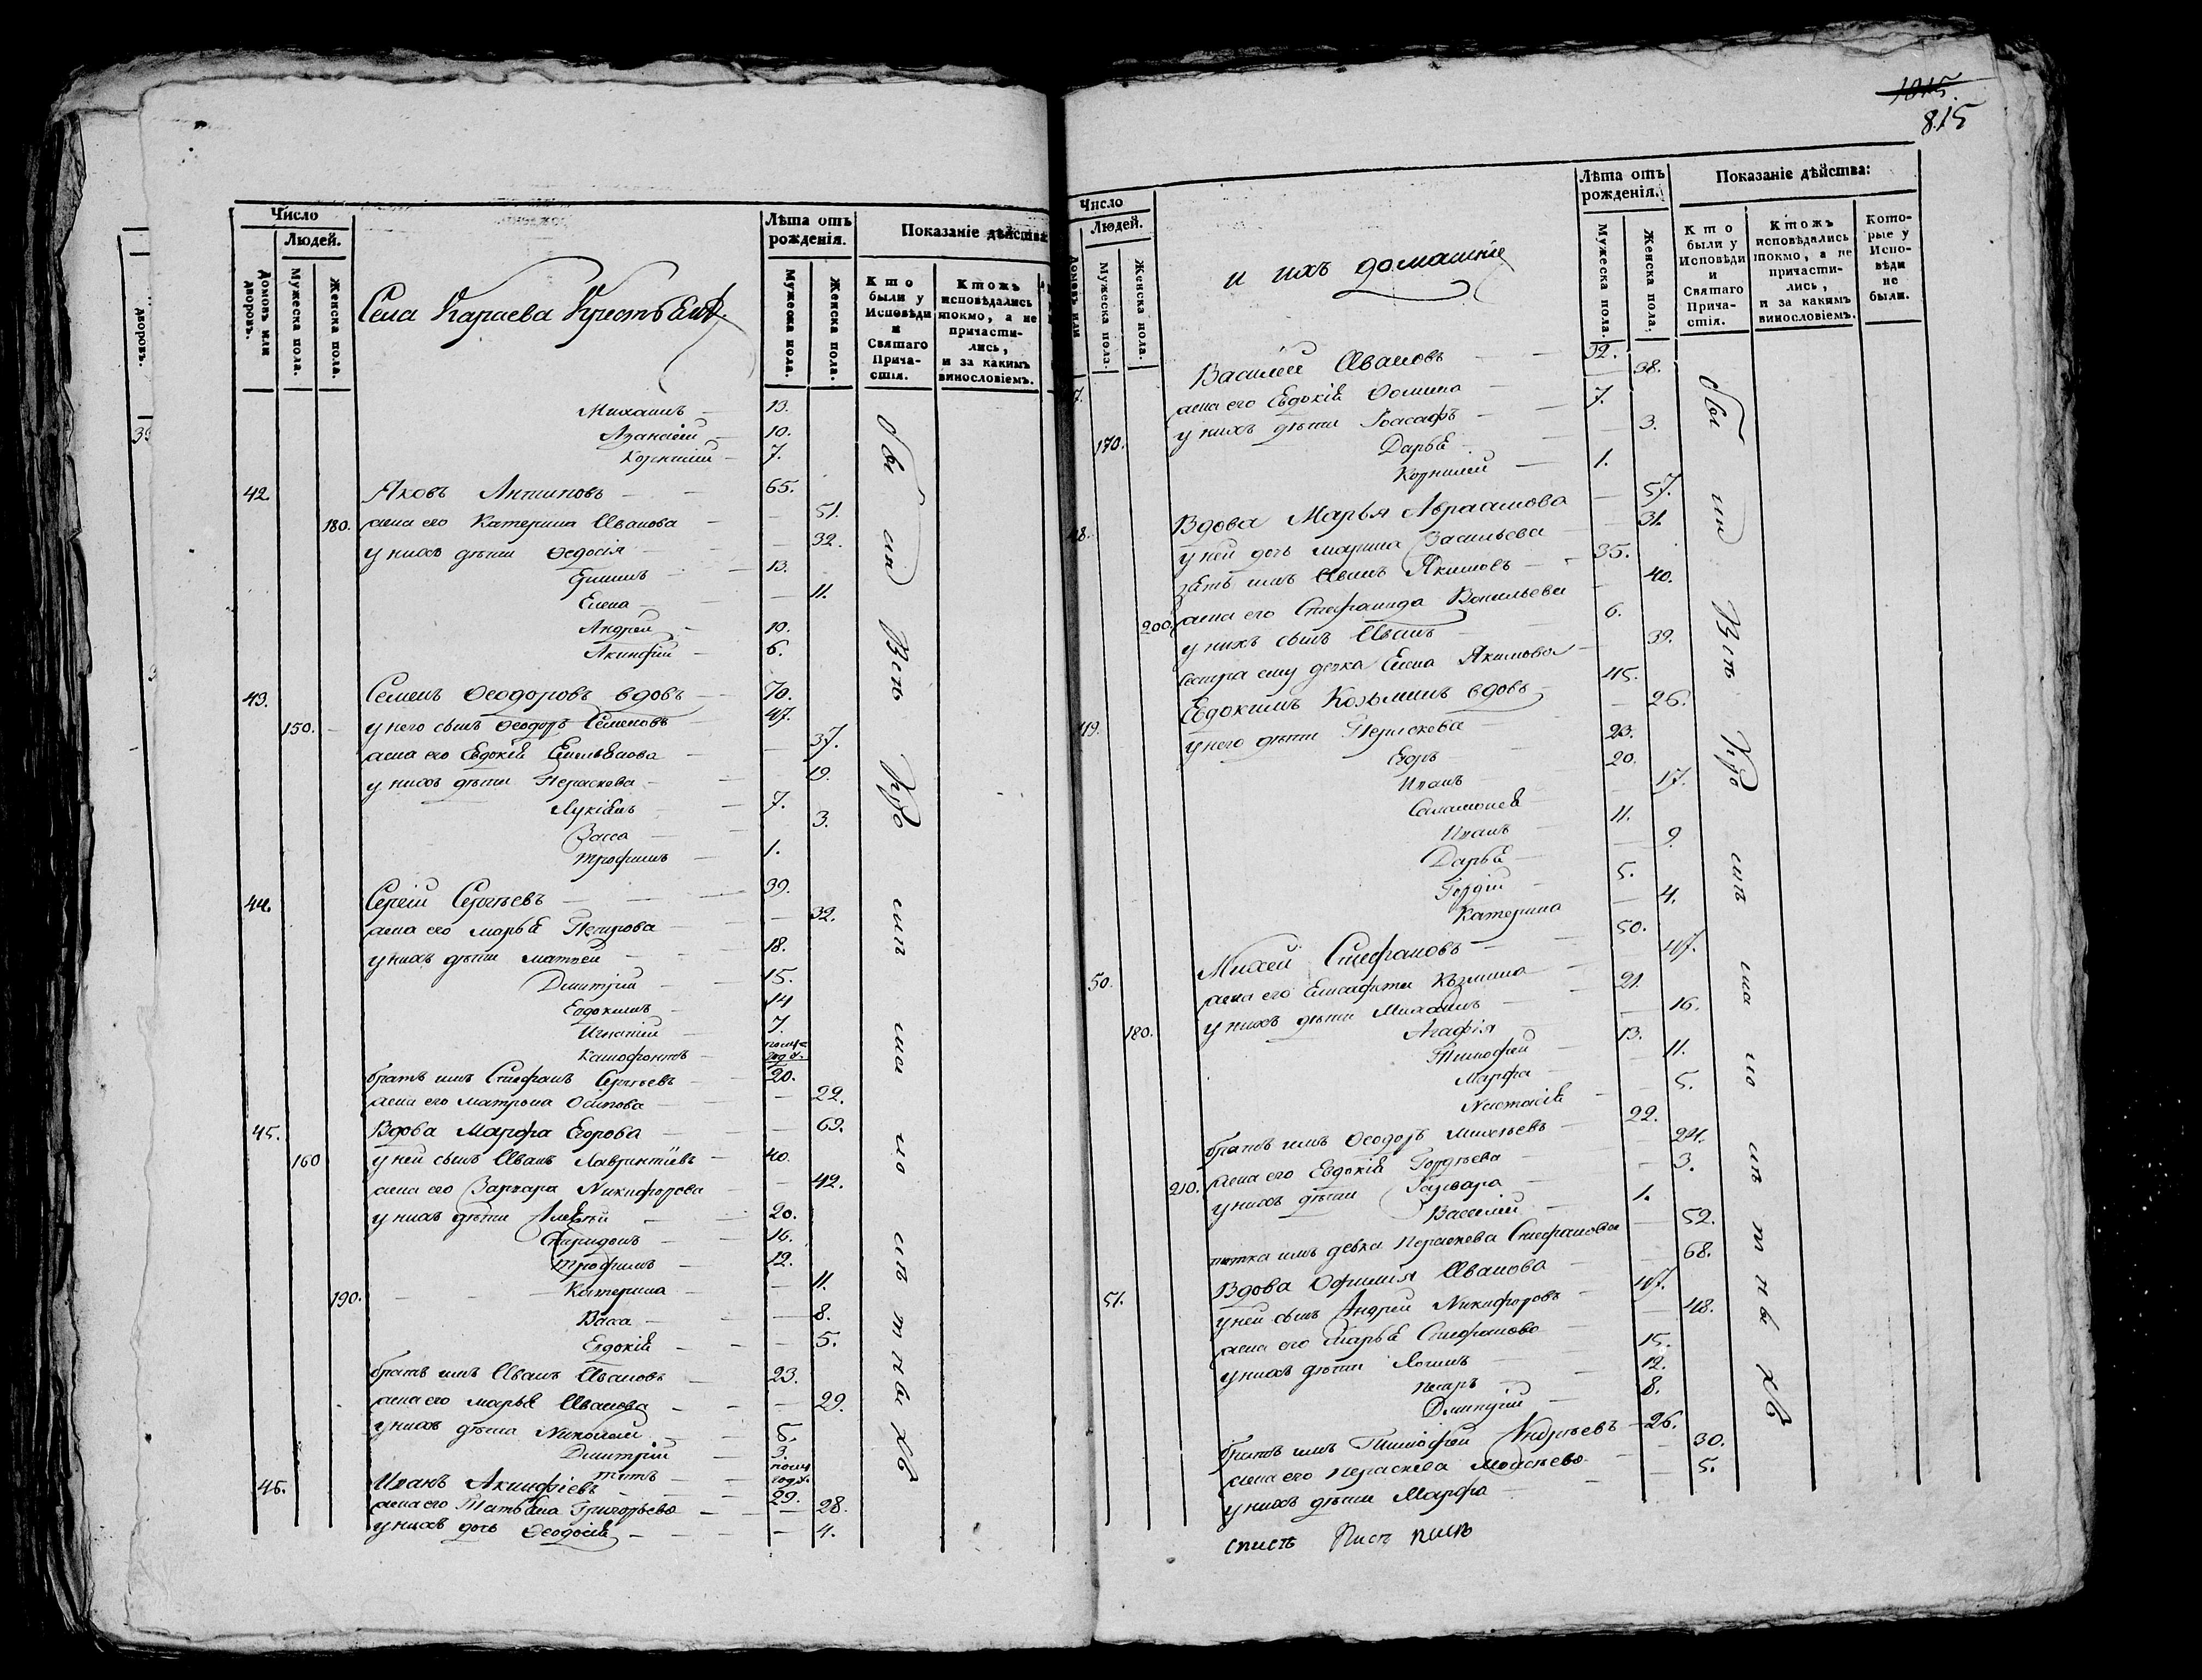 Число
Людей.
Домовъ или дворовъ.
Мужеска пола.
Женска пола.
Села Караева Крестьяня
Лѣта отъ рожденія.
Мужеска пола.
Женска пола.
Показаніе дѣйства
Кто были у Исповѣди и Святаго Прича-стія.
Ктожъ исповѣдались токмо, а не причасти-лись, и за какимъ винословіемъ.
Михаилъ 13.
Афанасій 10.
Корнилій 7.
42 Яковъ Антиповъ 65.
180. жена его Катерина Иванова 51.
у нихъ дѣти Ѳедосія 32.
13.
Елена 11.
Андрей 10.
Акинфій 6.
43. Семенъ Ѳеодоровъ вдовъ 70.
150. у него сынъ Ѳеодоръ Семеновъ 47.
жена его Евдокія Емельянова 37.
у нихъ дѣти Пераскева 19.
Лукіянъ 7.
Васса 3.
трофимъ 1.
44. Сергій Сергѣевъ 39.
жена его марья Петрова 32.
у нихъ дѣти матвей 18.
Дмитрій 15.
Евдокимъ 14
Игнатій 7.
Ксенофонтъ полу-года.
братъ имъ Стефанъ Сергѣевъ 20.
жена его матрона Осипова 22.
45. Вдова Марфа Егорова 69.
160 у ней сынъ Иванъ Лаврентіевъ 40.
жена его Варвара Никифорова 42.
у нихъ дѣти Алексѣй 20.
Спиридонъ 16.
трофимъ 12.
190. Катерина 11.
Васса 8.
Евдокія 5.
братъ имъ Иванъ Ивановъ 23.
жена его марья Иванова 29.
у нихъ дѣти Николай 5.
Дмитрій 3.
титъ полугода.
46. Иванъ Акинфіевъ 29.
жена его Татьяна Григорьева 28.
у нихъ дочь Ѳеодосія 4.
1015.
815
Число
Людей.
Домовъ или
Мужеска пола.
Женска пола.
и ихъ домашнія
Лѣта отъ рожденія.
Мужеска пола.
Женска пола.
Показаніе дѣйства:
Кто были у Исповѣди и Святаго Прича-стія.
Ктожъ исповѣдались токмо, а не причасти-лись, и за какимъ винословіемъ.
Кото-рые у Испо-вѣди не были.
7. Василій Ивановъ 32.
жена его Евдокія Ѳомина 38.
170. у нихъ дѣти Іоасафъ 7.
Дарья 3.
Корнилій 1.
48. Вдова Марья Авраамова 57.
у ней дочь марина Васильева 31.
зять имъ Иванъ Якимовъ 35.
200. жена его Стефанида Васильева 40.
у нихъ сынъ Иванъ 6.
сестра ему девка Елена Якимова 39.
49. Евдокимъ Козьминъ вдовъ 45.
у него дѣти Пераскева 26.
Егоръ 23.
Иванъ 20.
Саламонея 17.
Иванъ 11.
Дарья 9.
Гордій 5.
Катерина 4.
50. Михей Стефановъ 50.
жена его Елисафета Козмина 47.
180. у нихъ дѣти Михаилъ 21.
Агафія 16.
Тимофей 13.
Марфа 11.
Настасія 5.
братъ имъ Ѳеодоръ Михеевъ 22.
210. жена его Евдокія Гордѣева 24.
у нихъ дѣти Варвара 3.
Василій 1.
тетка имъ девка Пераскева Стефанова 52.
51. Вдова Офимія Иванова 68.
у ней сынъ Андрей Никифоровъ 47.
жена его Марья Стефанова 48.
у нихъ дѣти Логинъ 15.
Петръ 12.
Дмитрій 8.
братъ имъ Тимофей Андрѣевъ 26.
жена его Пераскева Моисѣева 30.
у нихъ дѣти Марфа 5.
списъ Писъ писъ